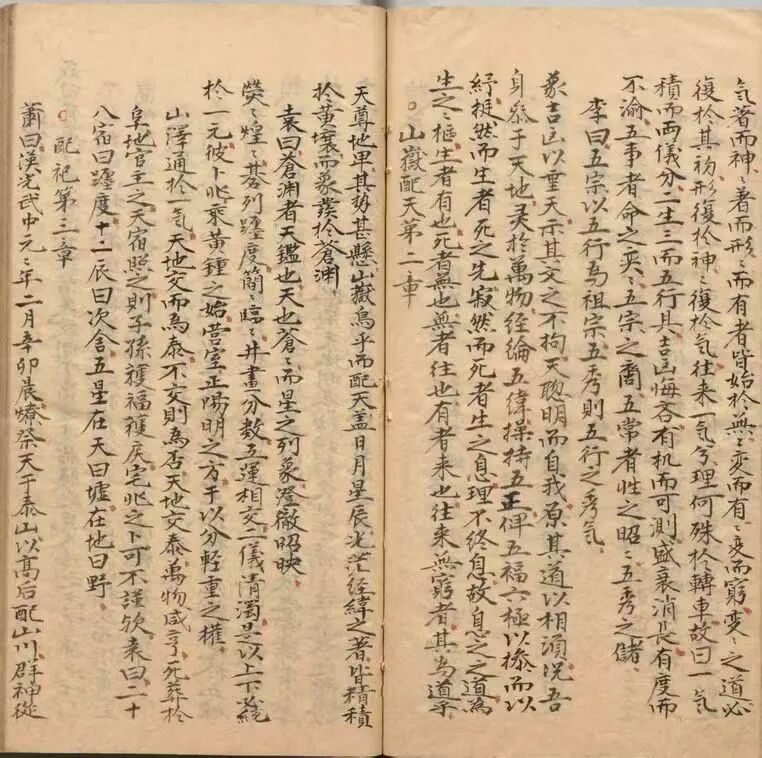 气著而神〻著而形〻而有者皆始於無〻变而有〻变而窮变〻之道必
復於其初形復於神〻復於气往来一气兮理何殊於轉車故曰一气
積而两儀分二生三而五行具吉凶悔吝有机而可測盛衰消長有度而
不渝五事者命之奕〻五宗之裔五常者性之昭〻五秀之儲
李曰五宗以五行為祖宗五秀則五行之秀气
象吉凶以垂天示其文之不拘天聰明而自我原其道以相須況吾
身叅于天地灵於萬物經綸五偉操持五正俾五福六極以摻而以
紓挺然而生者死之先寂然而死者生之息理不終息故自忘之道為
生之〻樞生者有也死者無也無者往也有者来也往来無窮者其為道乎
○山嶽配天第二章
天尊地卑其势甚懸山嶽烏乎而配天盖日月星辰光茫經緯之著皆精積
於黄壤而象發於蒼渊
袁曰蒼渊者天鑑也天也蒼〻而星之列象澄徹昭映
熒〻煌〻碁列躔度簡〻臨〻井畫分数五運相交二儀清濁是以上下必統
於一元彼卜兆乘黄鍾之始营室正陽明之方于以分輕重之權
山澤通於一气天地交而為泰不交則為否天地交泰萬物咸亨死葬於
阜地官主之天宿照之則子孫獲福獲戻宅兆之卜可不謹欤来曰二十
八宿曰躔度十二辰曰次舍五星在天曰墟在地曰野
○配祀第三章
萧曰漢光武中元〻年二月辛卯晨燎祭天于泰山以髙后配山川群神從